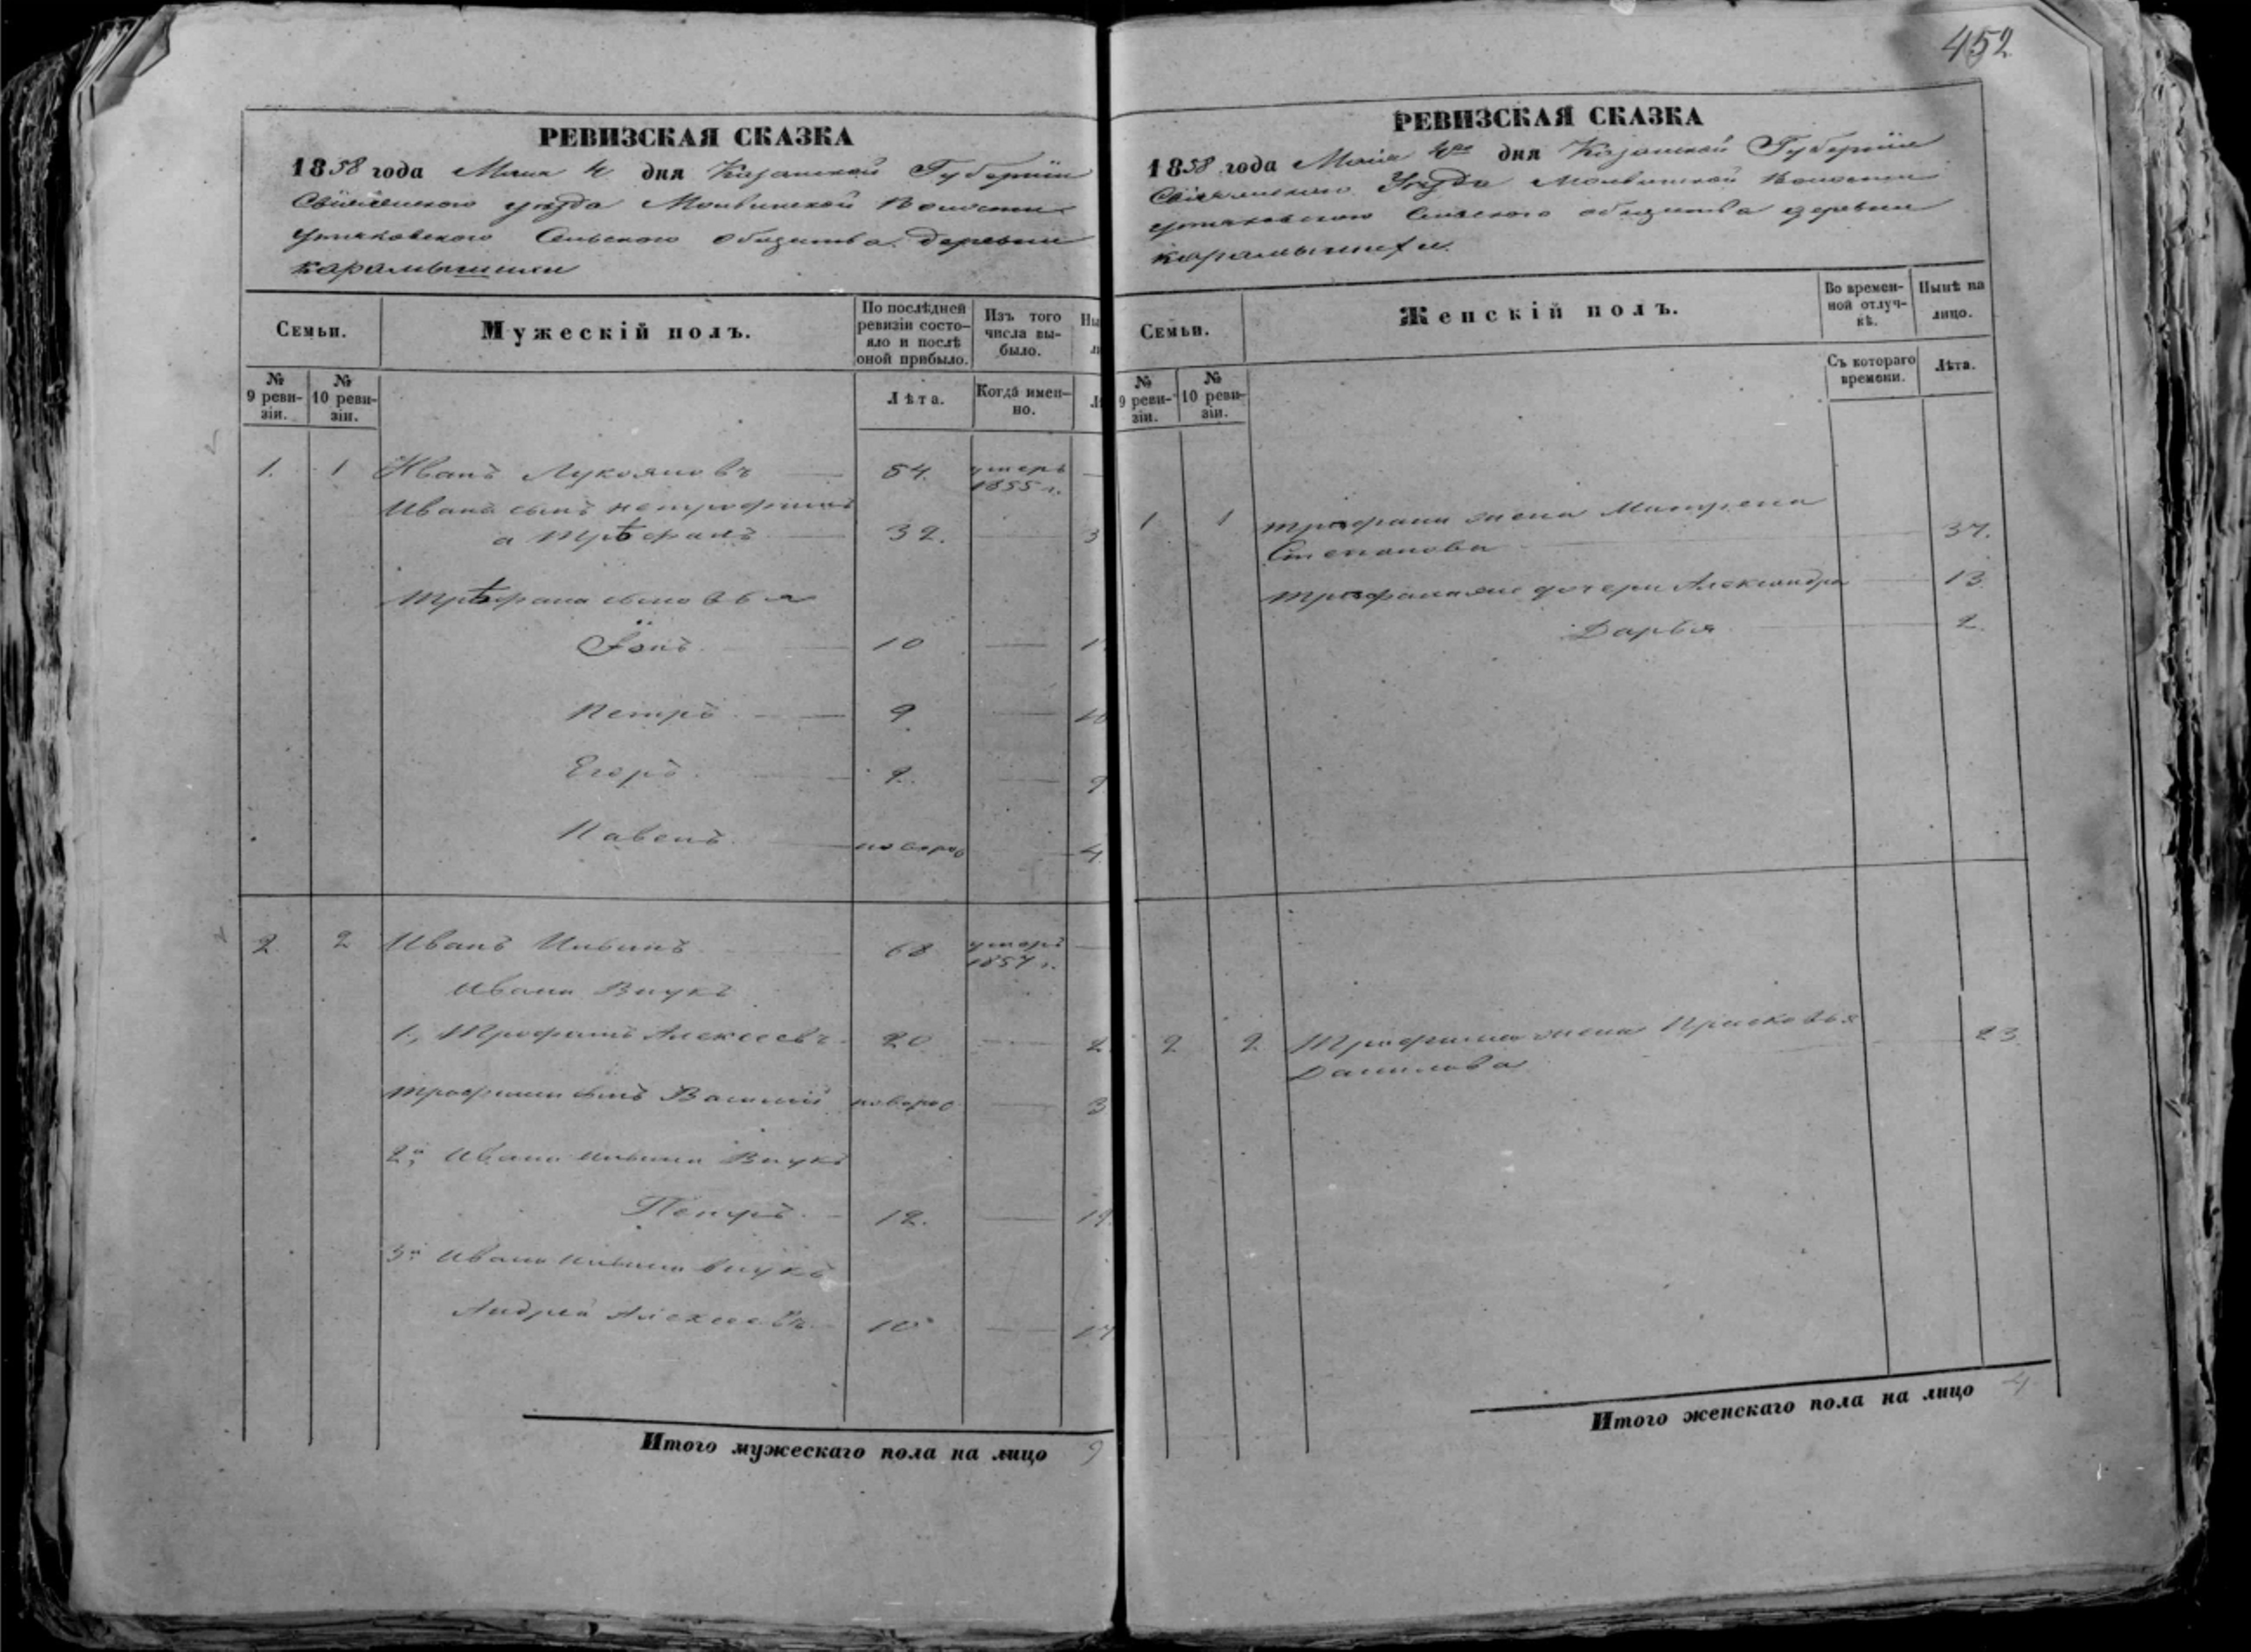 452
РЕВИЗСКАЯ СКАЗКА
1858 года Маия 4 дня Казанской Губернии
Свіяжскаго уѣзда Молвинской Волости
Утяковскаго Сельскаго общества деревни
Карамышихи
Семьи.
Мужескій полъ.
По послѣдней
ревизіи состо-
яло и послѣ
оной прибыло.
Изъ того
числа вы-
было.
№
9 реви-
зіи.
№
10 реви-
зіи.
Лѣта.
Когда имен-
но.
1. 1 Иванъ Лукояновъ 54. умеръ
1855 г.
Ивана сынъ
а 32. 3
сыновья
10 1
Петръ 9 10
Егоръ 2. 9
Павелъ новорож 4
2 2 Иванъ Ильинъ 68 умеръ
1857 г.
Ивана Внукъ
1, Трофимъ Алексеевъ 20 2
Трофима сынъ Василій новорож 3
2й Ивана Ильина Внукъ
Петръ 12. 19
3й Ивана Ильина внукъ
Андрей Алексеевъ 10 17
Итого мужескаго пола на лицо 9
РЕВИЗСКАЯ СКАЗКА
1858 года Маия 4го дня Казанской Губерніи
Свіяжскаго Уѣзда Молвинской Волости
Утяковскаго Сельскаго общества деревни
Карамышихи.
Семьи.
Женскій полъ.
Во времен-
ной отлуч-
кѣ.
Нынѣ на
лицо.
№
9 реви-
зіи.
№
10 реви-
зіи.
Съ котораго
времени.
Лѣта.
1 1 жена Матрена
Степанова 37.
дочери Александра 13
Дарья 2.
2 2 Трофима жена Прасковья
Данилова 23.
Итого женскаго пола на лицо 4